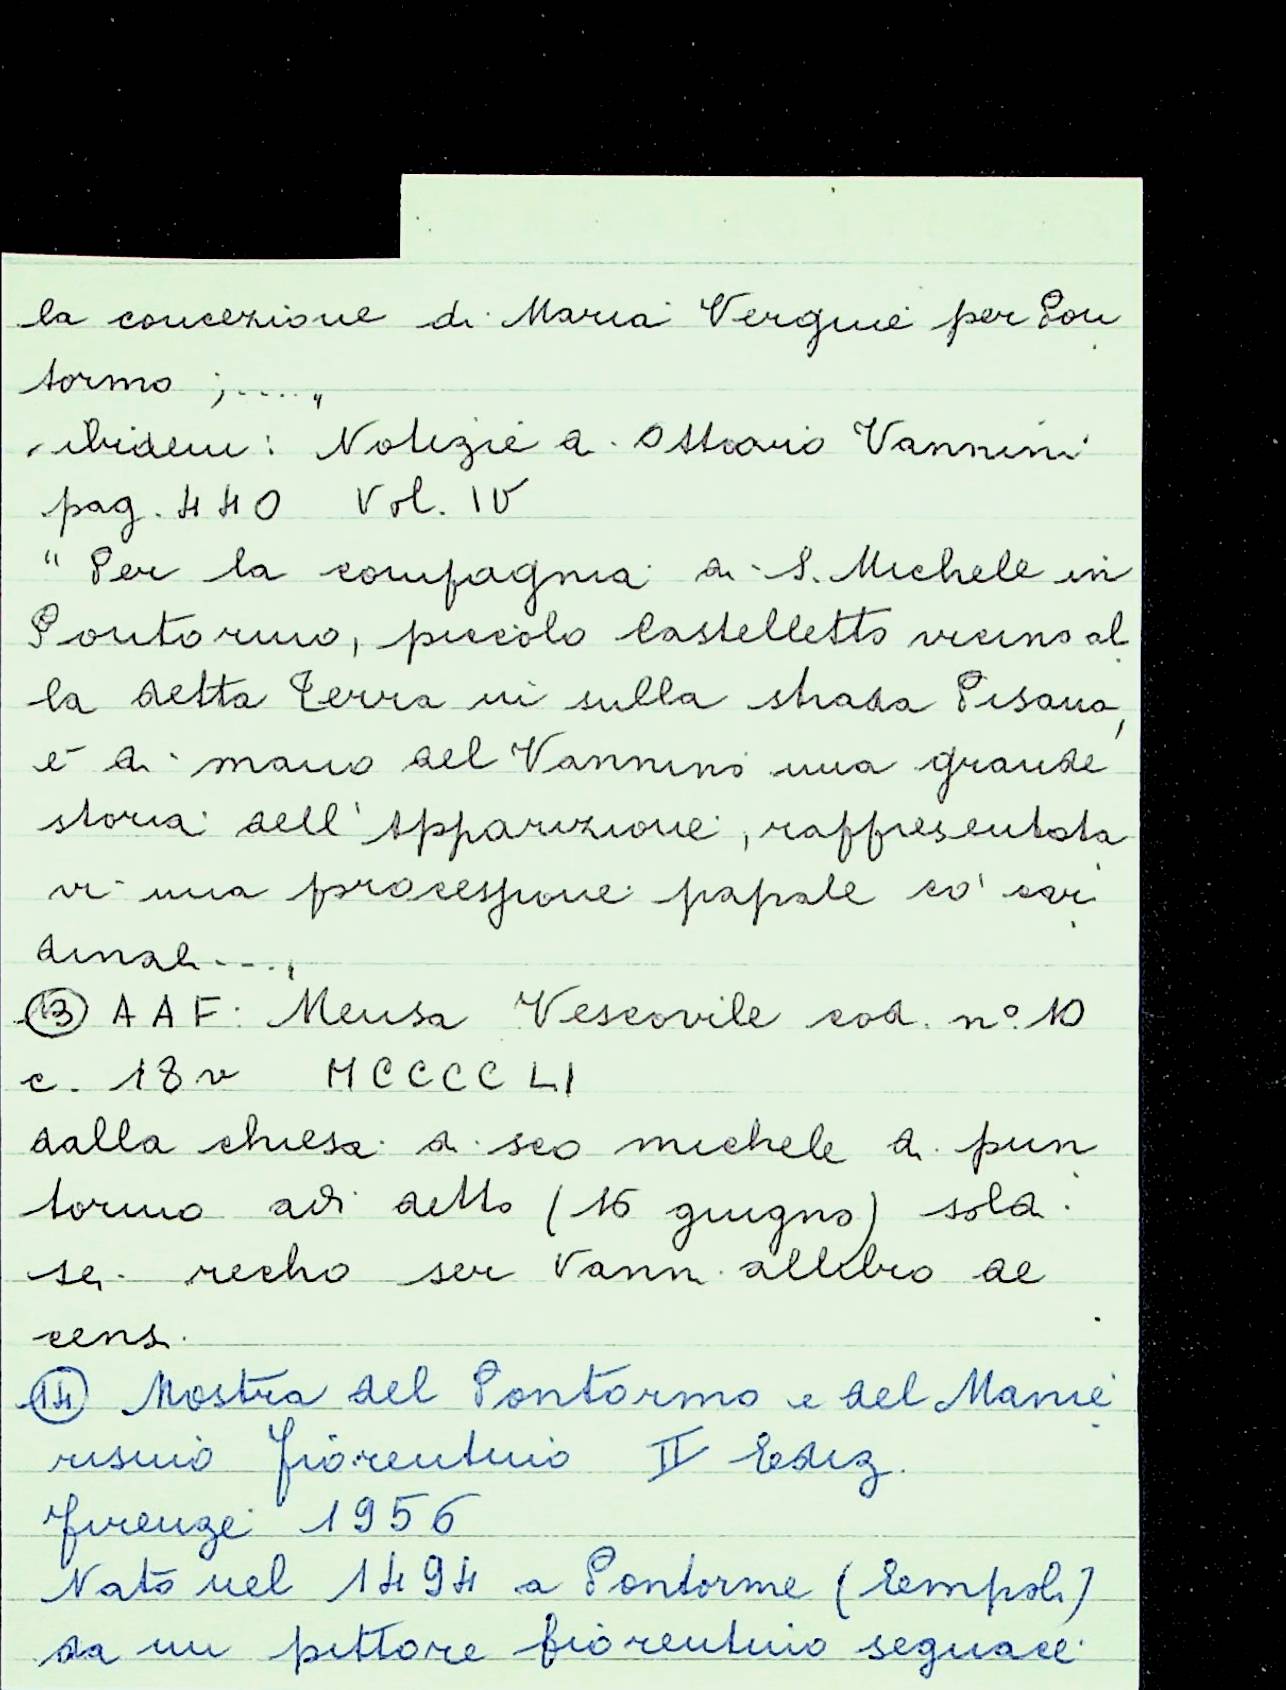 la concezione di Maria Vergine per Pon
tormo ;....„
ibidem: Notizie di Ottavio Vannini
pag. 440 Vol. IV
“ Per la compagnia di S. Michele in
Pontormo, piccolo Castelletto vicino al
la detta Terra in sulla strada Pisana,
è di mano del Vannini una grande
storia dell'Apparizione, rappresentata
vi una processione papale co' car
dinali...,
13 AAF: Mensa Vescovile cod. n° 10
c. 18v MCCCCLI
dalla chiesa di sco michele di pun
tormo adi detto (16 giugno) soldi
sei recho ser Vanni allibro de
censi
14 Mostra del Pontormo e del Manie
rismo fiorentino II Ediz.
Firenze 1956
Nato nel 1494 a Pontorme (Empoli)
da un pittore fiorentino seguace